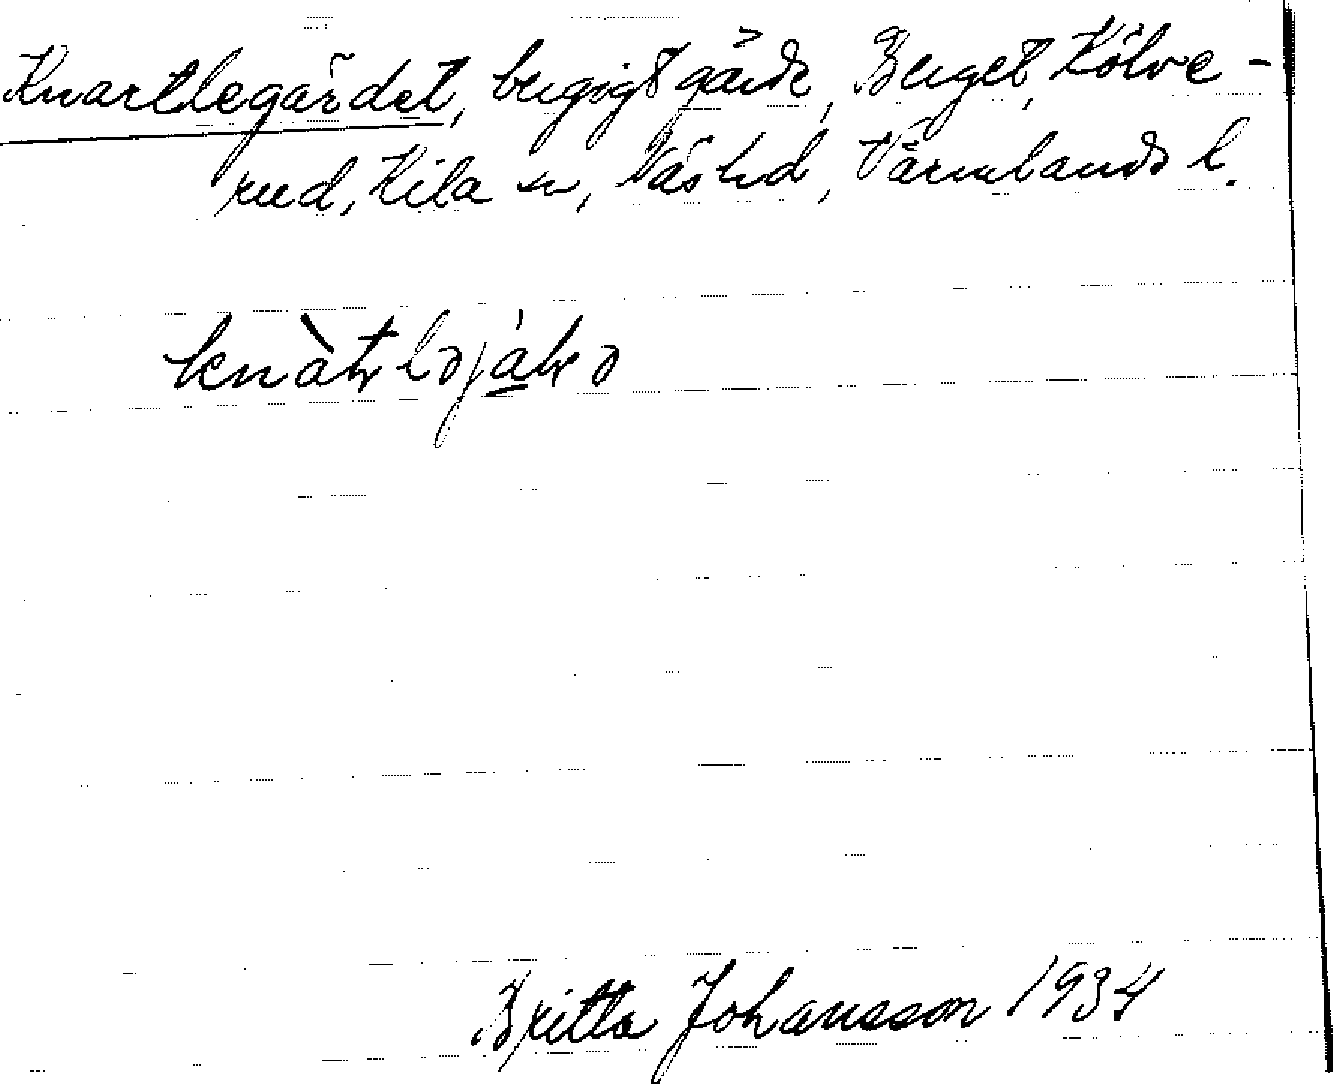 Knartlegärdet, bergigt gärde, Berget, Kölve-
rud, Kila sn, Näs hd, Värmlands l.
Britta Johansson 1934